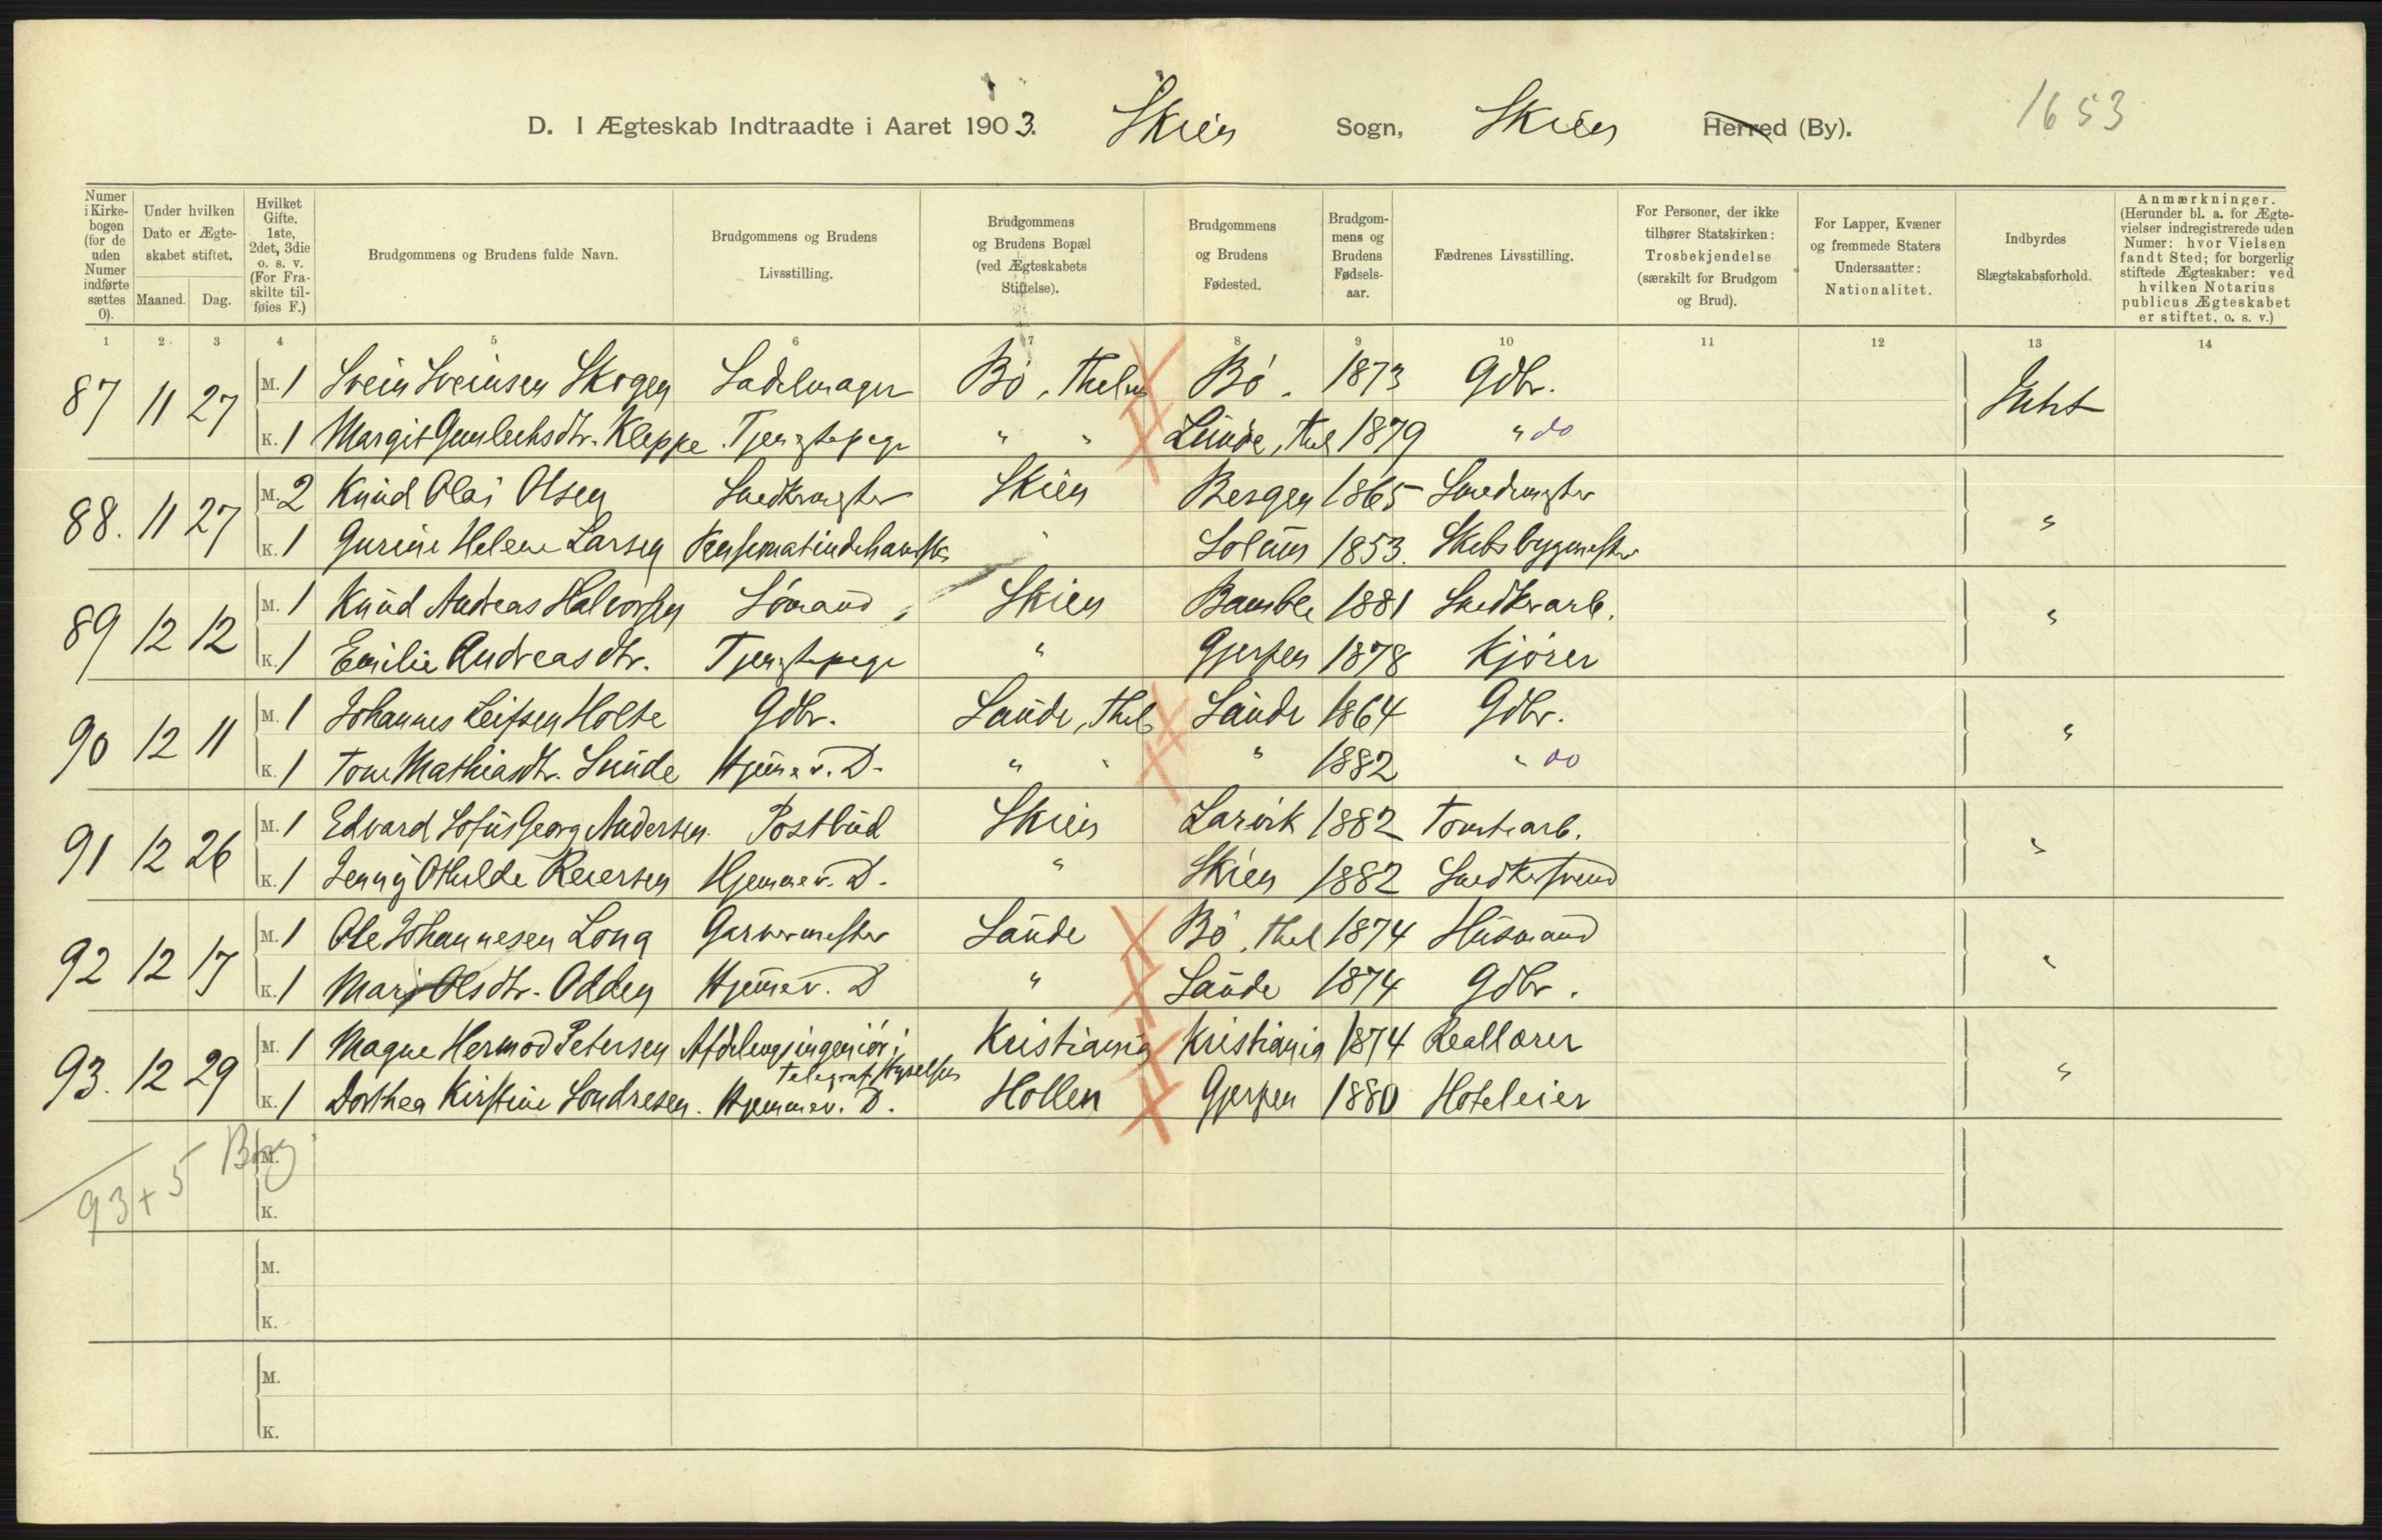 1653
D. I Ægteskab Indtraadte i Aaret 1903. Skien Sogn, Skien Herred (By).
Numer i Kirkebogen (for de uden Numer indførte sættes 0).
Under hvilken Dato er Ægteskabet stiftet.
Maaned. Dag.
Hvilket Gifte. 1ste, 2det, 3die o. s. v. (For Fraskilte tilføies F.)
Brudgommens og Brudens fulde Navn.
Brudgommens og Brudens Livsstilling.
Brudgommens og Brudens Bopæl (ved Ægteskabets Stiftelse).
Brudgommens og Brudens Fødested.
Brudgommens og Brudens Fødselsaar.
Fædrenes Livsstilling.
For Personer, der ikke tilhører Statskirken: Trosbekjendelse (særskilt for Brudgom og Brud).
For Lapper, Kvæner og fremmede Staters Undersaatter: Nationalitet.
Indbyrdes Slægtskabsforhold.
Anmærkninger. (Herunder bl. a. for Ægtevielser indregistrerede uden Numer: hvor Vielsen fandt Sted; for borgerlig stiftede Ægteskaber: ved hvilken Notarius publicus Ægteskabet er stiftet, o. s. v.)
1 2 3 4 5 6 7 8 9 10 11 12 13 14
87 11 27 M. 1 Svein Sveinsen Skogen Sadelmager Bö, Thelm Bö. 1873 Gdbr. Intet
K. 1 Margit Gunleiksdtr. Kleppe Tjenestepige " " Lunde, Thel 1879 " do
88. 11 27 M. 2 Knud Olai Olsen Snedkermester Skien Bergen 1865 Smedmester "
K. 1 Gurine Helene Larsen " Solum 1853. Skibsbygmester
89 12 12 M. 1 Knud Andreas Halvorsen Sömand Skien Bamble 1881 Snedkerarb. "
K. 1 Emilie Andreasdtr. Tjenestepige " Gjerpen 1878 Kjörer
90 12 11 M. 1 Johannes Leifsen Holte Gdbr. Saude, Thel Saude 1864 Gdbr. "
K. 1 Tone Mathiasdtr. Lunde Hjemmev. D. " " " 1882 " do
91 12 26 M. 1 Edvard Sofus Georg Andersen Postbud Skien Larvik 1882 Tomtearb. "
K. 1 Jenny Othilde Reiersen Hjemmev. D. " Skien 1882 Snedkersvend
92 12 17 M. 1 Ole Johannesen Long Garvermester Saude Bö, Thel 1874 Husmand "
K. 1 Mari Olsdtr. Odden Hjemmev. D " Saude 1874 Gdbr.
93. 12 29 M. 1 Magne Hermod Petersen Afdelingsingeniör i Telegrafstyrelsen Kristiania Kristiania 1874 Reallærer "
K. 1 Dorthea Kirstine Sondresen. Hjemmev. D. Hollen Gjerpen 1880 Hoteleier
93 + 5 Borg
M.
K.
M.
K.
M.
K.